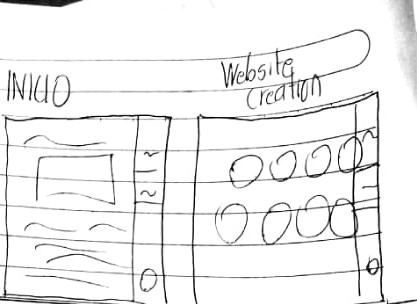 INICIO
Website
Creation